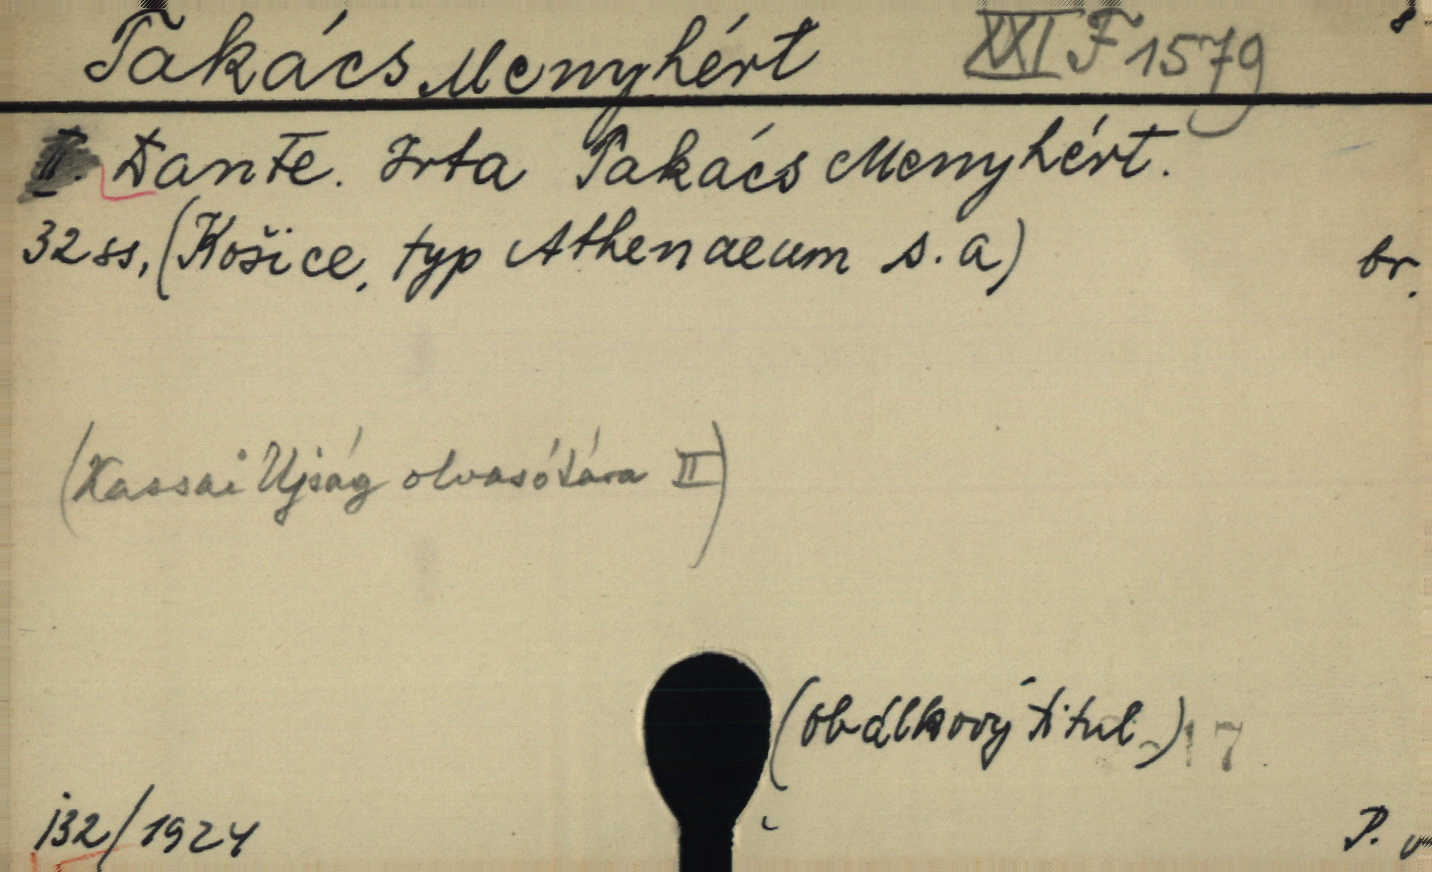 Takács Menyhért XXI F 1579
II. Dante. Irta Takács Menyhért.
32 ss, (Košice, typ Athenaeum s. a) br.
(Kassai Ujság olvasótára II)
(obálkový titul) 17
132/1924 P. v